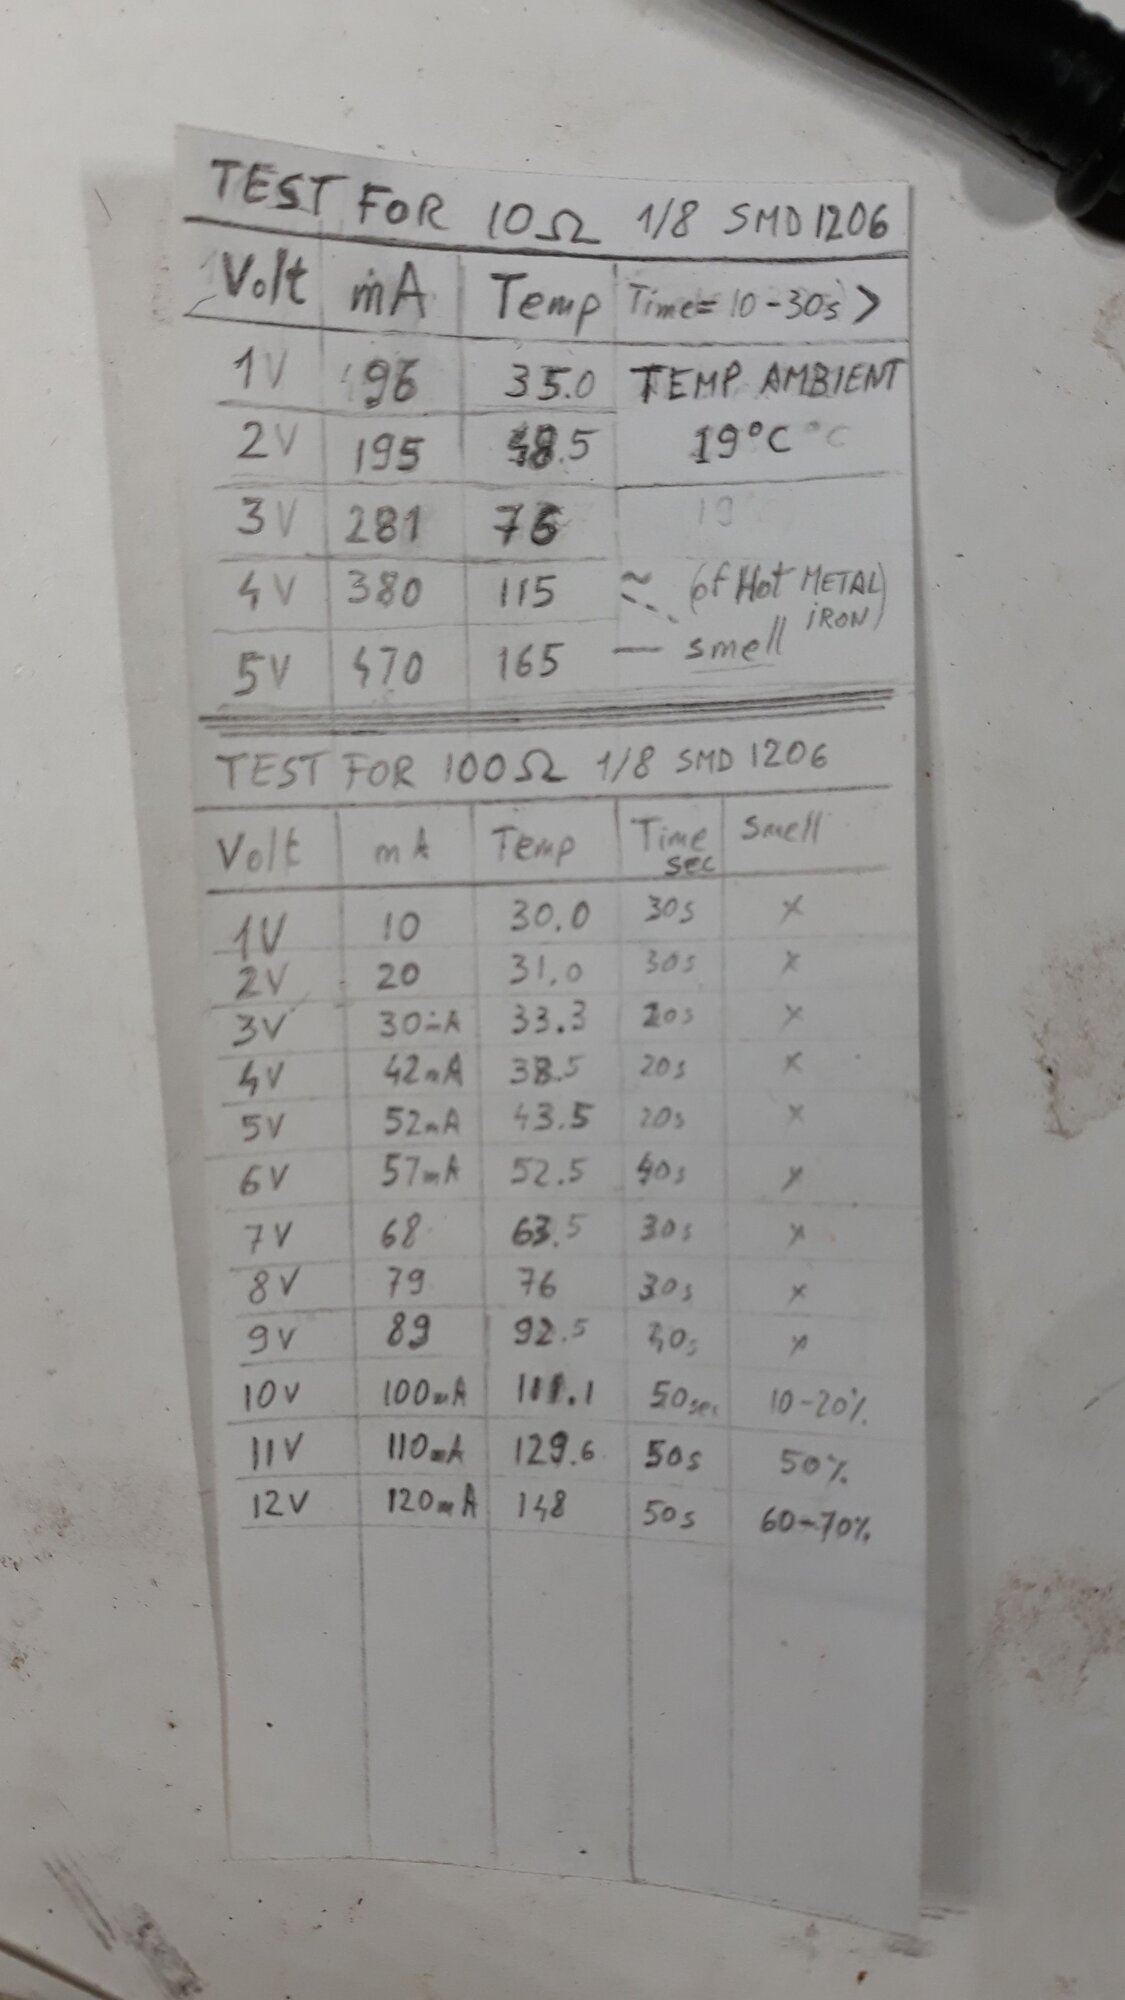 TEST FOR 10Ω 1/8 SMD 1206
Volt mA Temp Time= 10-30s >
1V 96 35.0 TEMP AMBIENT
2V 195 48.5 19°C °C
3V 281 76 19
4V 380 115 ≈ (of Hot METAL
IRON)
5V 470 165 — smell
TEST FOR 100Ω 1/8 SMD 1206
Volt mA Temp Time sec Smell
1V 10 30.0 30s x
2V 20 31.0 30s x
3V 30mA 33.3 20s x
4V 42mA 38.5 20s x
5V 52mA 43.5 20s x
6V 57mA 52.5 40s x
7V 68 63.5 30s x
8V 79 76 30s x
9V 89 92.5 x
10V 100mA 111.1 50sec 10-20%
11V 110mA 129.6 50s 50%
12V 120mA 148 50s 60-70%